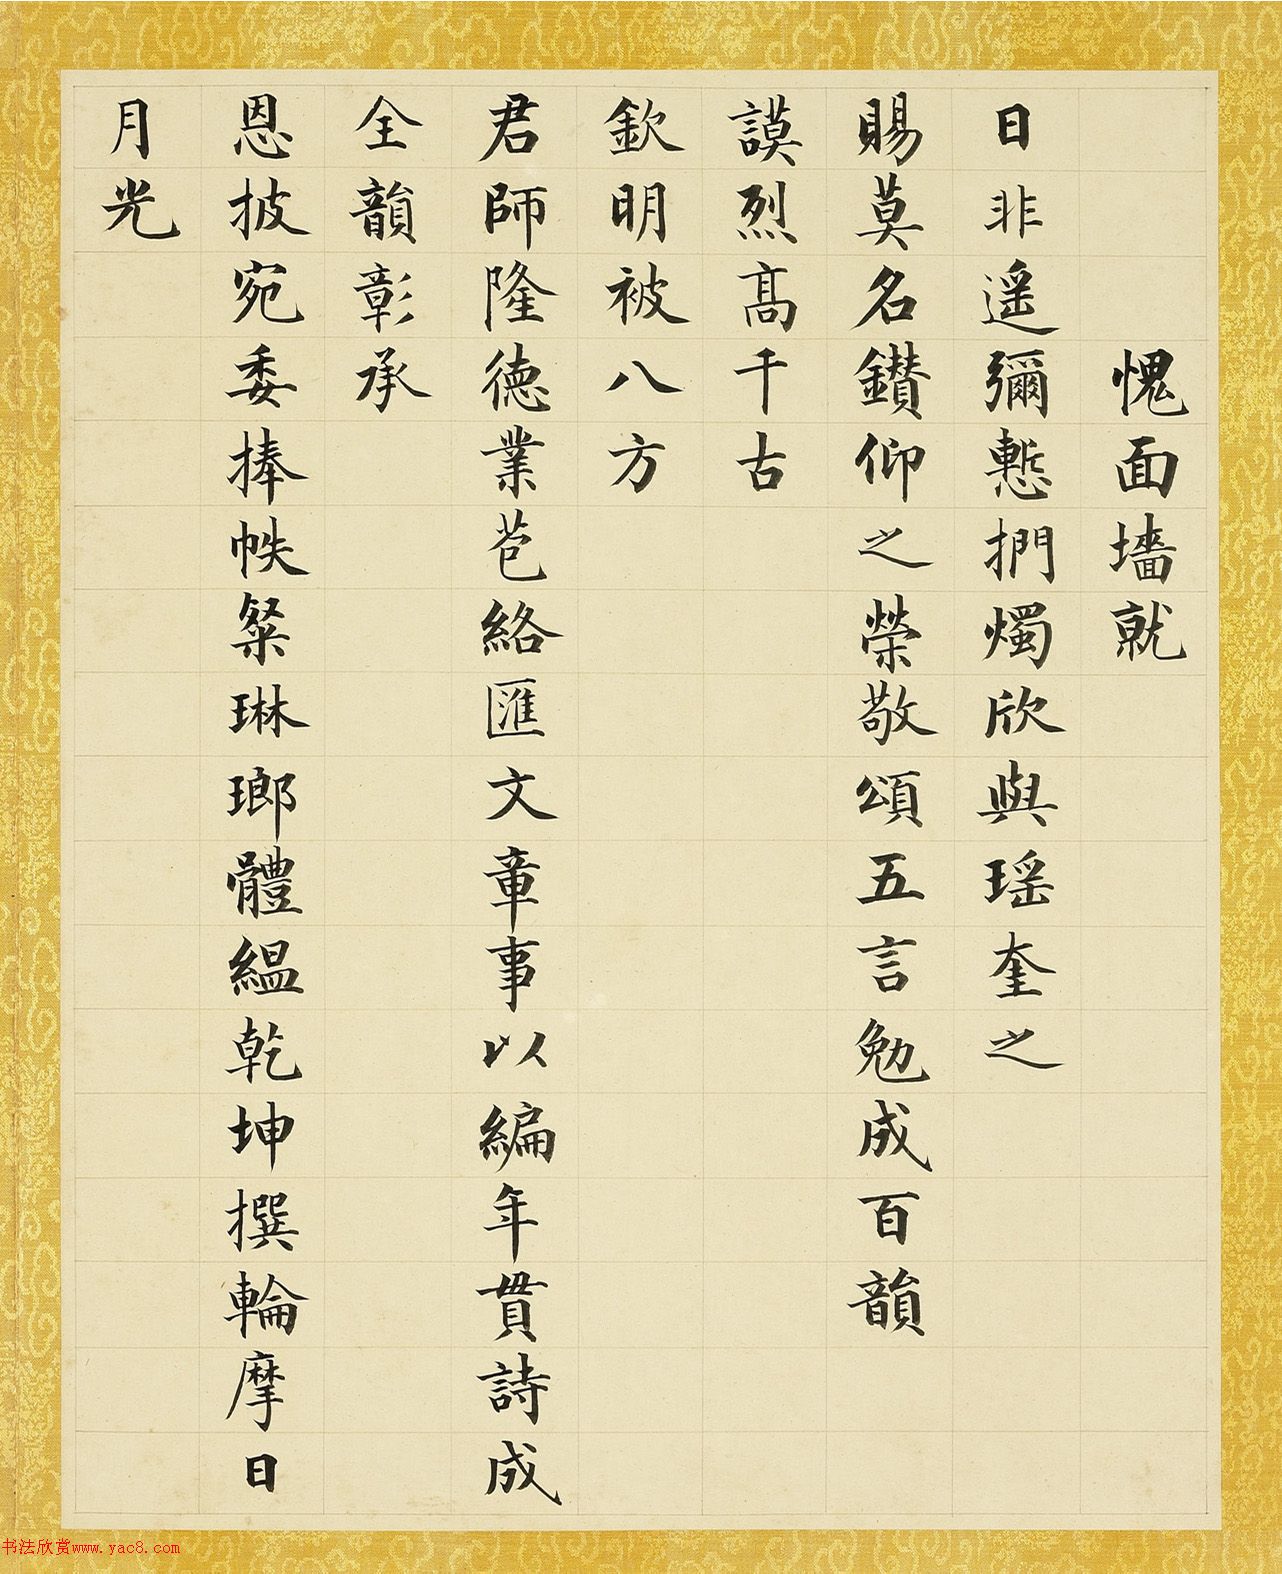 愧面墻就
日非遥彌慙捫燭欣與瑶奎之
賜莫名鑚仰之榮敬頌五言勉成百韻
謨烈髙千古
欽明被八方
君師隆德業苞絡匯文章事以編年貫詩成
全韻彰承
恩披宛委捧帙粲琳瑯體緼乾坤撰輪摩日
月光
书法欣赏www.yac8.com